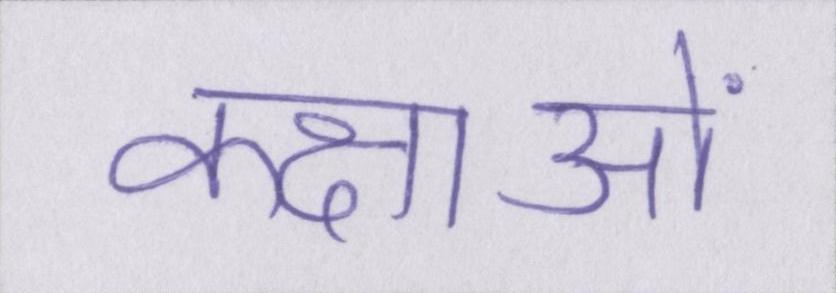 कक्षाओं